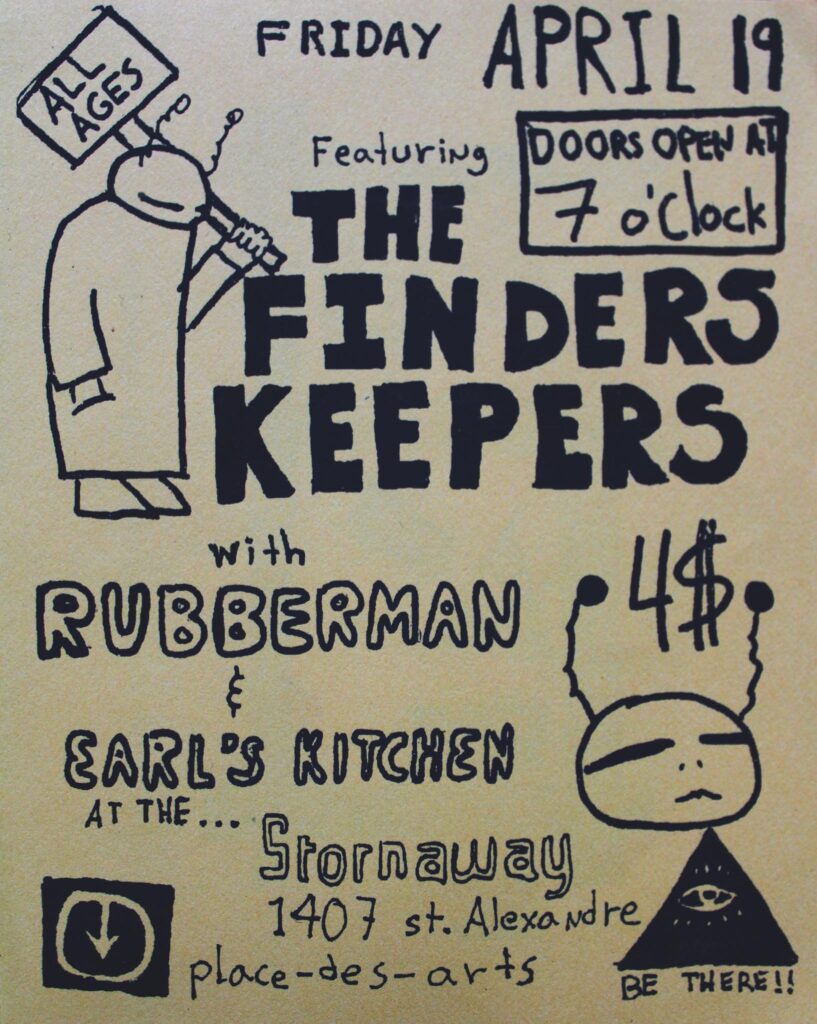 FRIDAY APRIL 19
ALL
AGES
DOORS OPEN AT
7 o'Clock
Featuring
THE
FINDERS
KEEPERS
with
RUBBERMAN
&
EARL'S KITCHEN
4$
AT THE...
Stornaway
1407 st. Alexandre
place-des-arts
BE THERE!!